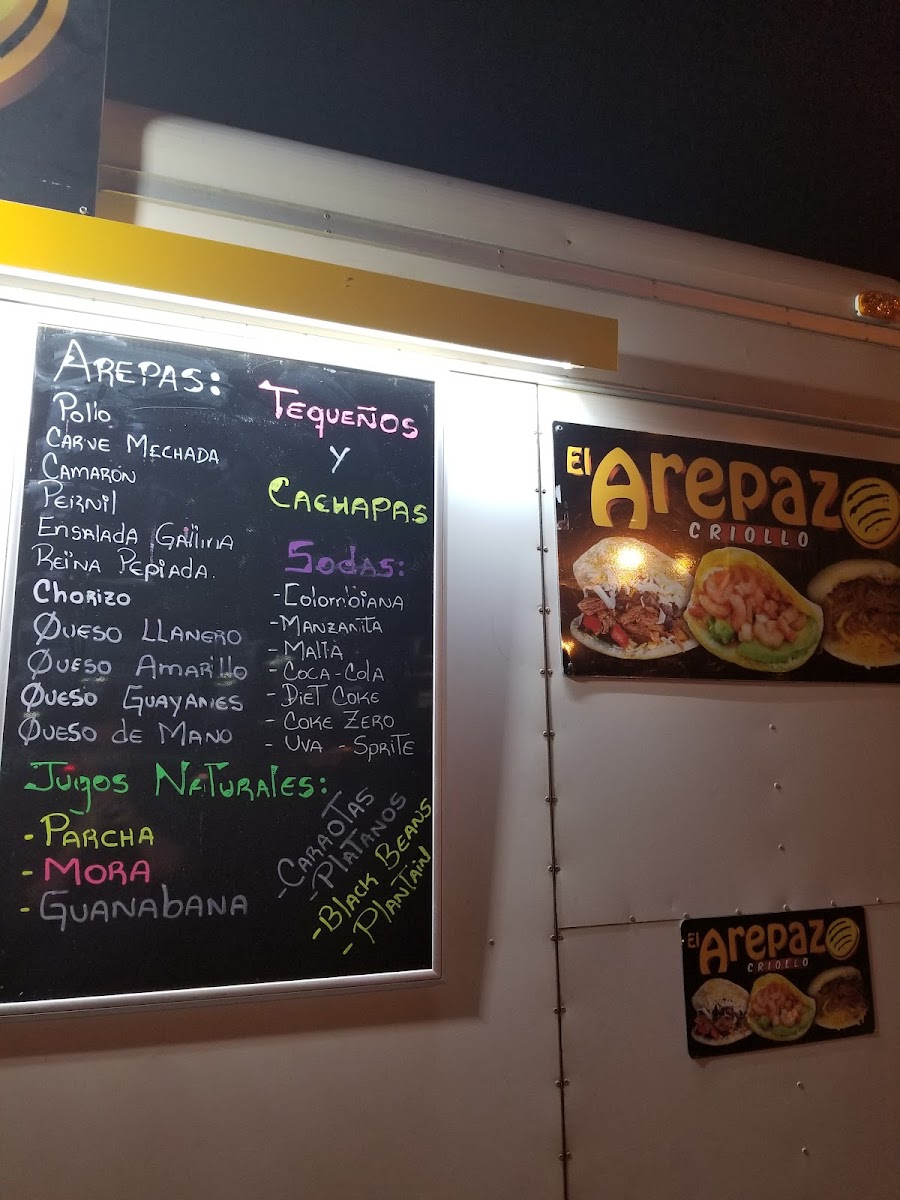 AREPAS:
Pollo
CARNE MECHADA
CAMARÓN
PERNIL
ENSALADA GALLINA
REINA PEPIADA.
CHORIZO
QUESO LLANERO
QUESO AMARILLO
QUESO GUAYANES
QUESO de MANO
JUGOS NATURALES:
- PARCHA
- MORA
- GUANABANA
TEQUEÑOS
Y
CACHAPAS
SODAS:
- Colombiana
- MANZANITA
- MALTA
- COCA-COLA
- DIET COKE
- COKE ZERO
- UVA - SPRITE
- CARAOTAS
- PLATANOS
- BLACK BEANS
- PLANTAIN
El Arepazo
CRIOLLO
El Arepazo
CRIOLLO